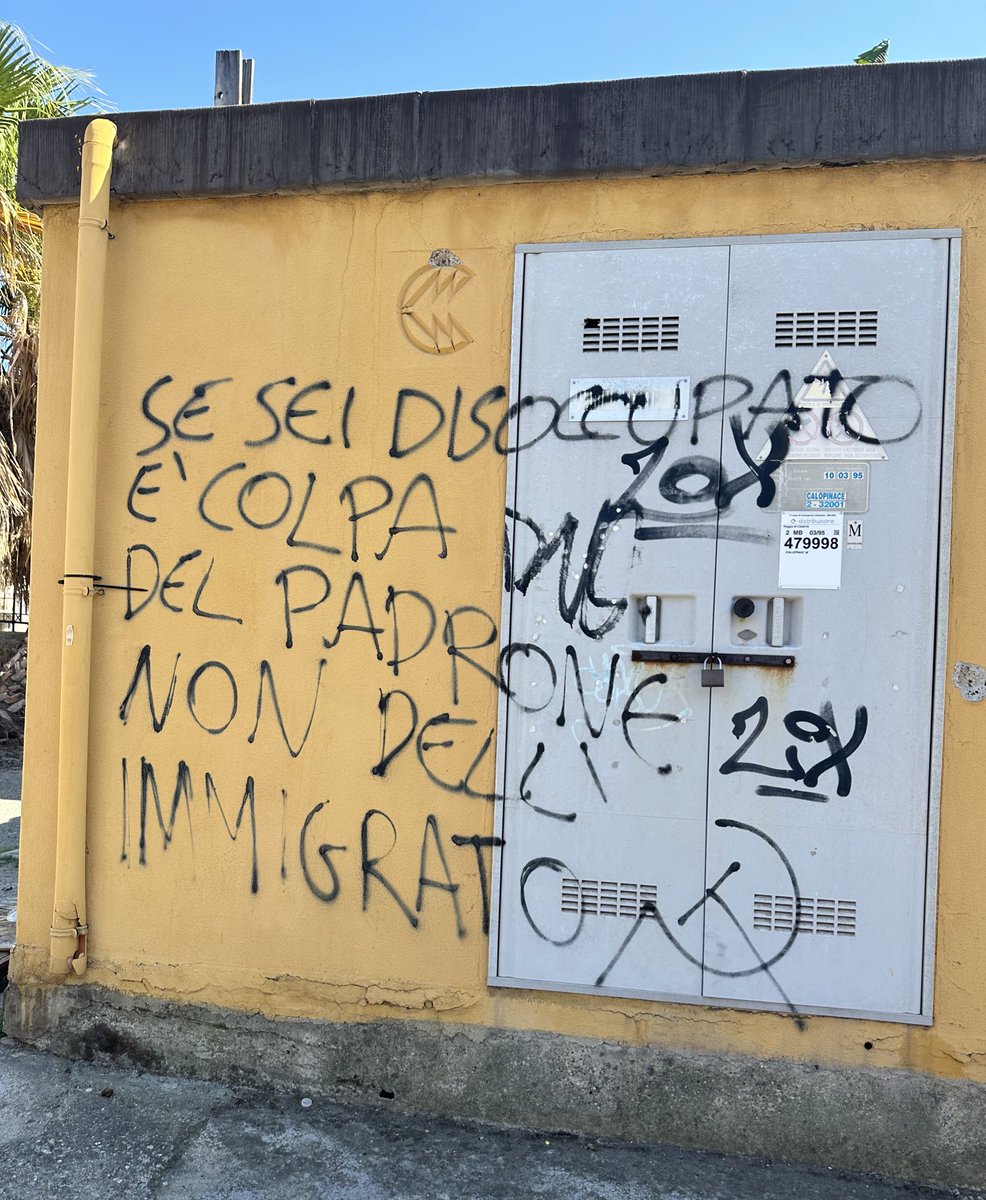 SE SEI DISOCCUPATO
E' COLPA
DEL PADRONE
NON DELL'
IMMIGRATO
10 03 95
CALOPINACE
2 - 32001
e-distribuzione
2 MB 03/95
479998
CALOPINAC M
M